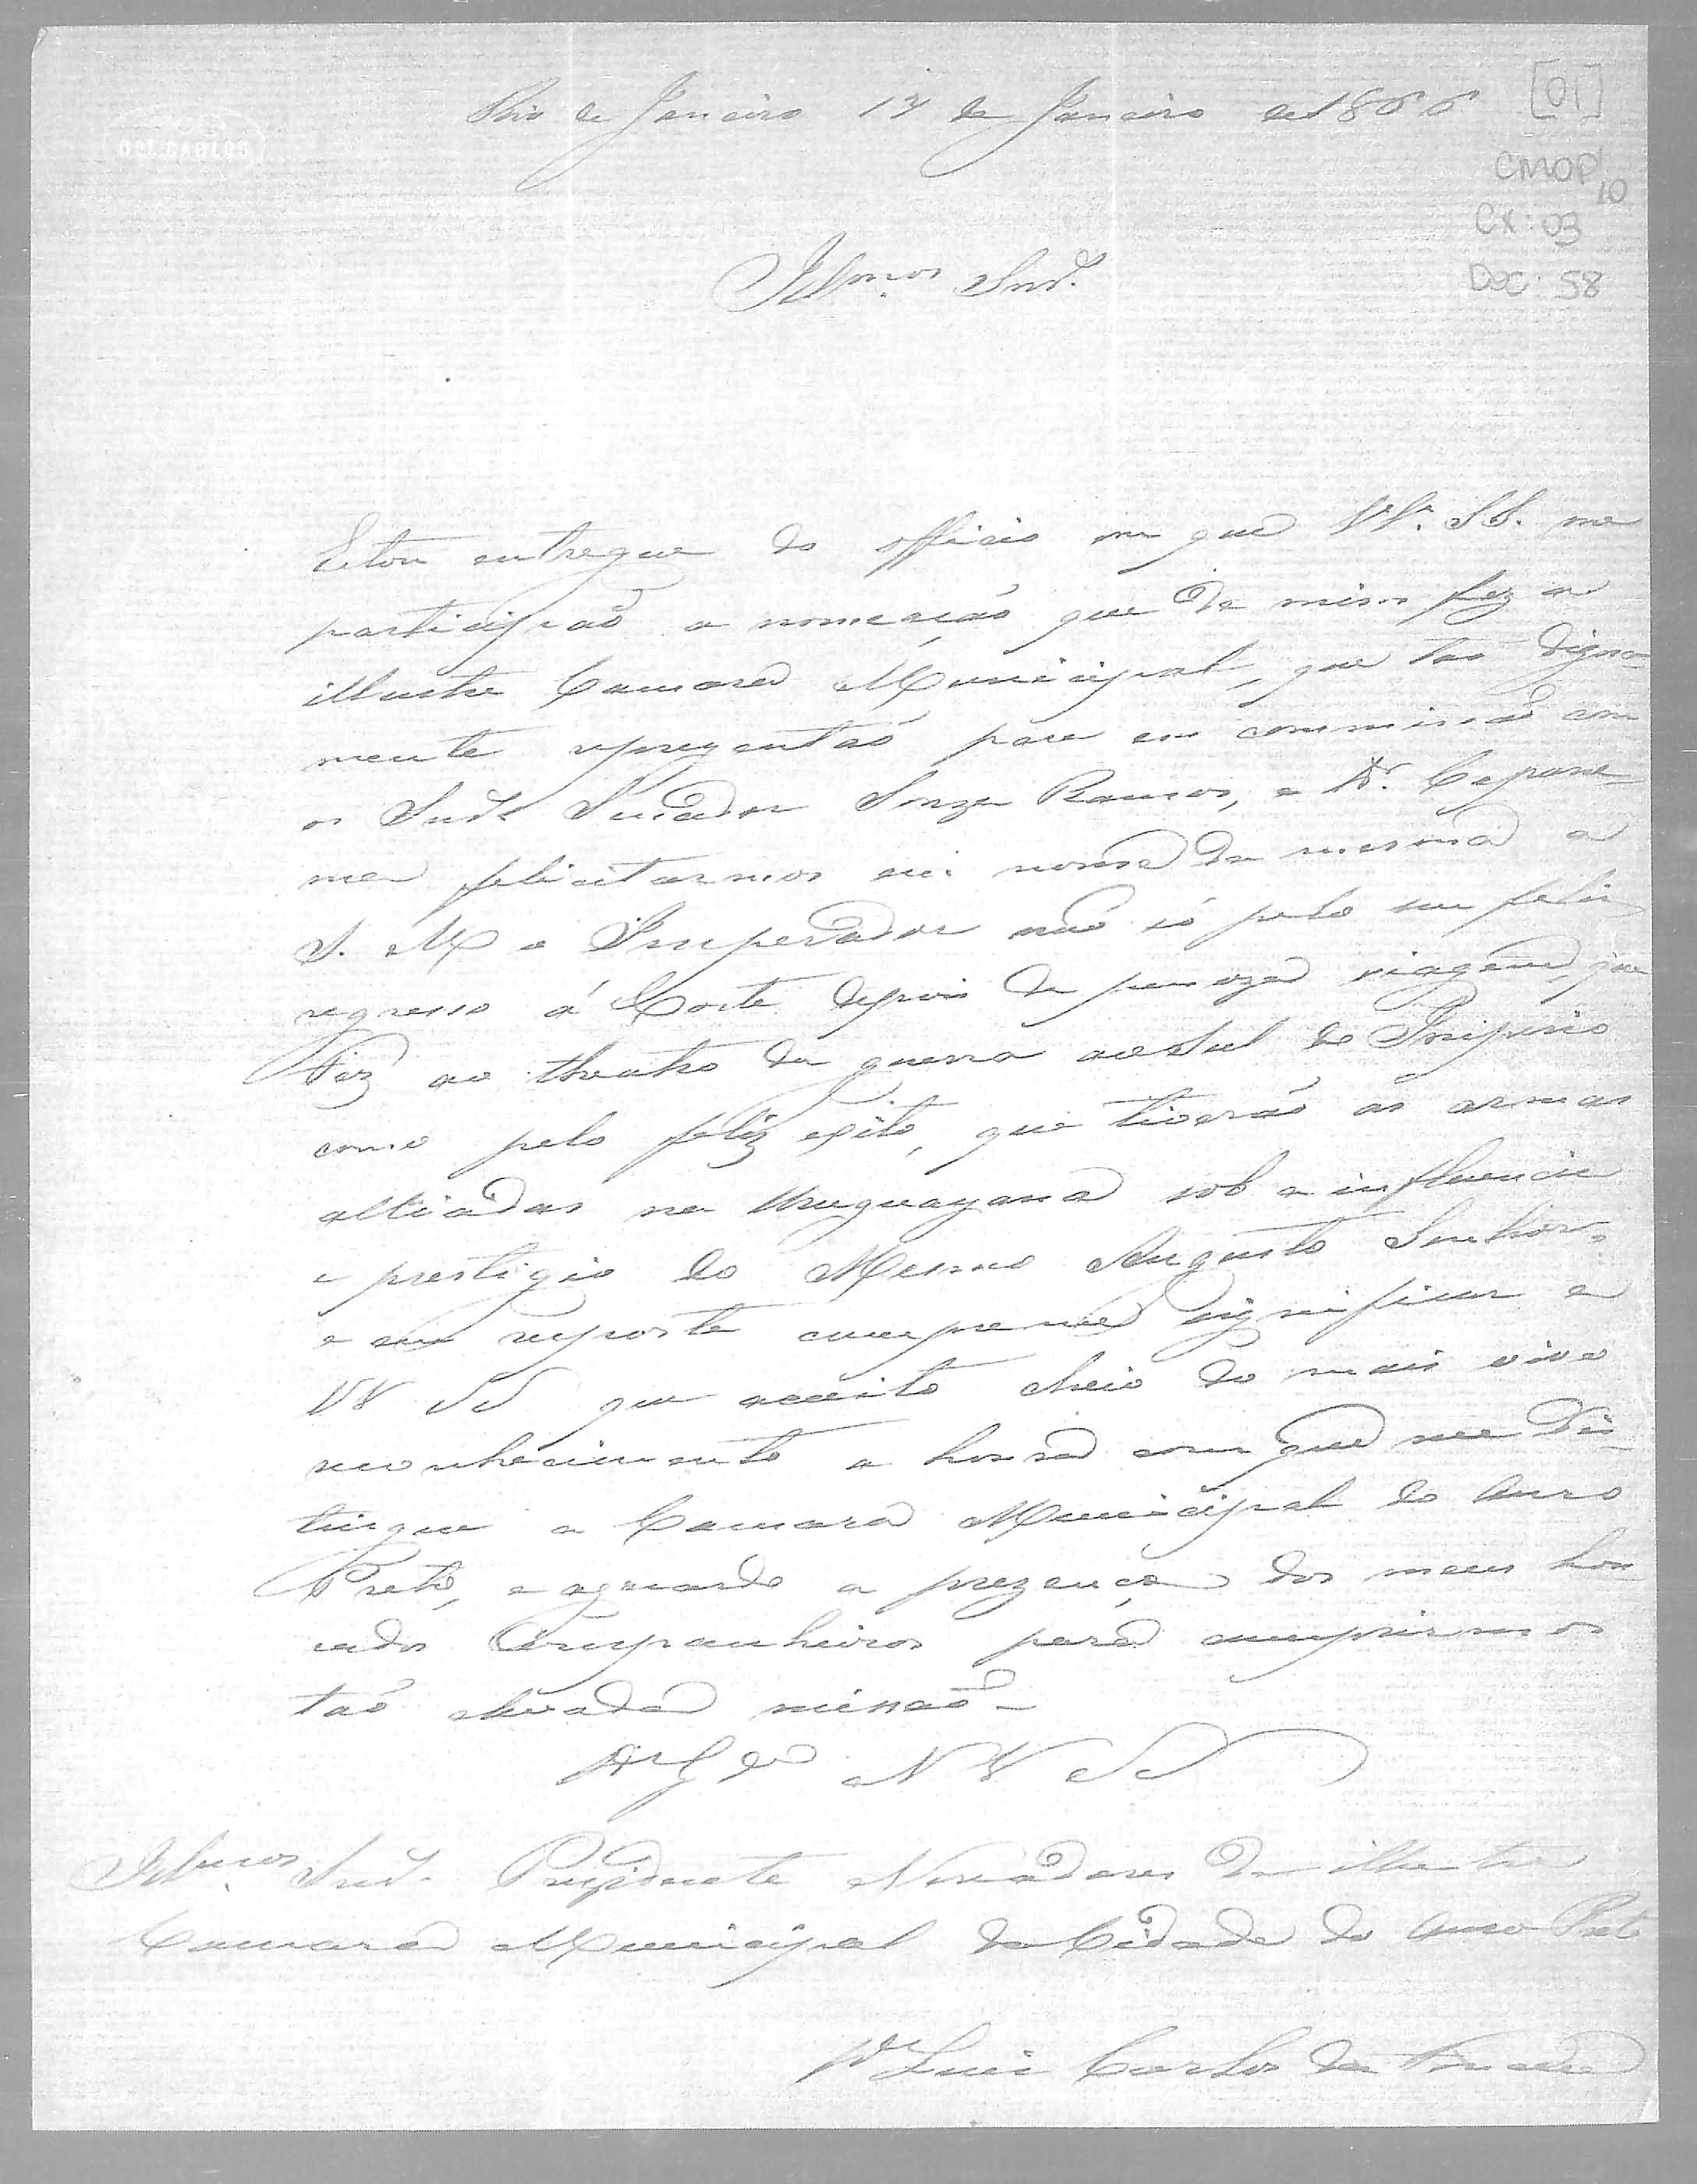 Rio de Janeiro 12 de Janeiro de 1866
[01]
CMOP
10
Cx: 03
Doc: 58
Illmos Snrs.
Estou entregue do officio em que VV. SS. me
participaõ a nomeaçaõ que de mim fez a
illustre Camara Municipal, que taõ digna
mente reprezentaõ para em commissaõ com
os Snrs Senador Souza Ramos, e Dr. Capane
ma felicitarmos em nome da mesma a
S. M o Imperador naõ só pelo seu feliz
regresso á Corte depois da penoza viagem, que
Fez ao theatro da guerra ao Sul do Imperio
como pelo feliz exito, que tiveraõ as armas
alliadas na Uruguayana sob a influencia
e prestigio do Mesmo Augusto Senhor,
e em resposta cumpre-me significar a
VV SS que acceito cheio do mais vivo
reconhecimento a honra com que me dis
tingue a Camara Municipal do Ouro
Preto, e aguardo a prezença dos meus hon
rados Companheiros para cumprirmos
taõ elevada missaõ -
Ds Gde a VV SS
Illmos Snrs. Prezidente Vereadores da illustre
Camara Municipal da Cidade do Ouro Preto
Dr Luis Carlos da Fonseca